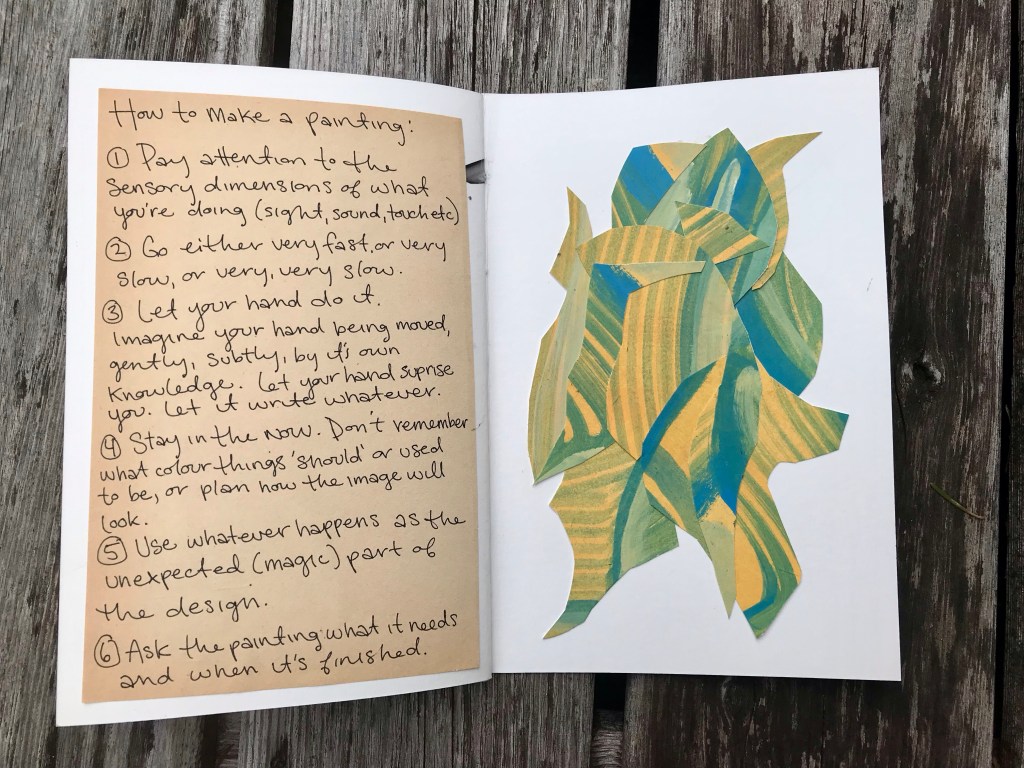 How to make a painting:
① Pay attention to the
sensory dimensions of what
you're doing (sight, sound, touch etc)
② Go either very fast, or very
slow, or very, very slow.
③ Let your hand do it.
Imagine your hand being moved,
gently, subtly, by it's own
knowledge. Let your hand suprise
you. Let it write whatever.
④ Stay in the now. Don't remember
what colour things 'should' or used
to be, or plan how the image will
look.
⑤ Use whatever happens as the
unexpected (magic) part of
the design.
⑥ Ask the painting what it needs
and when it's finished.